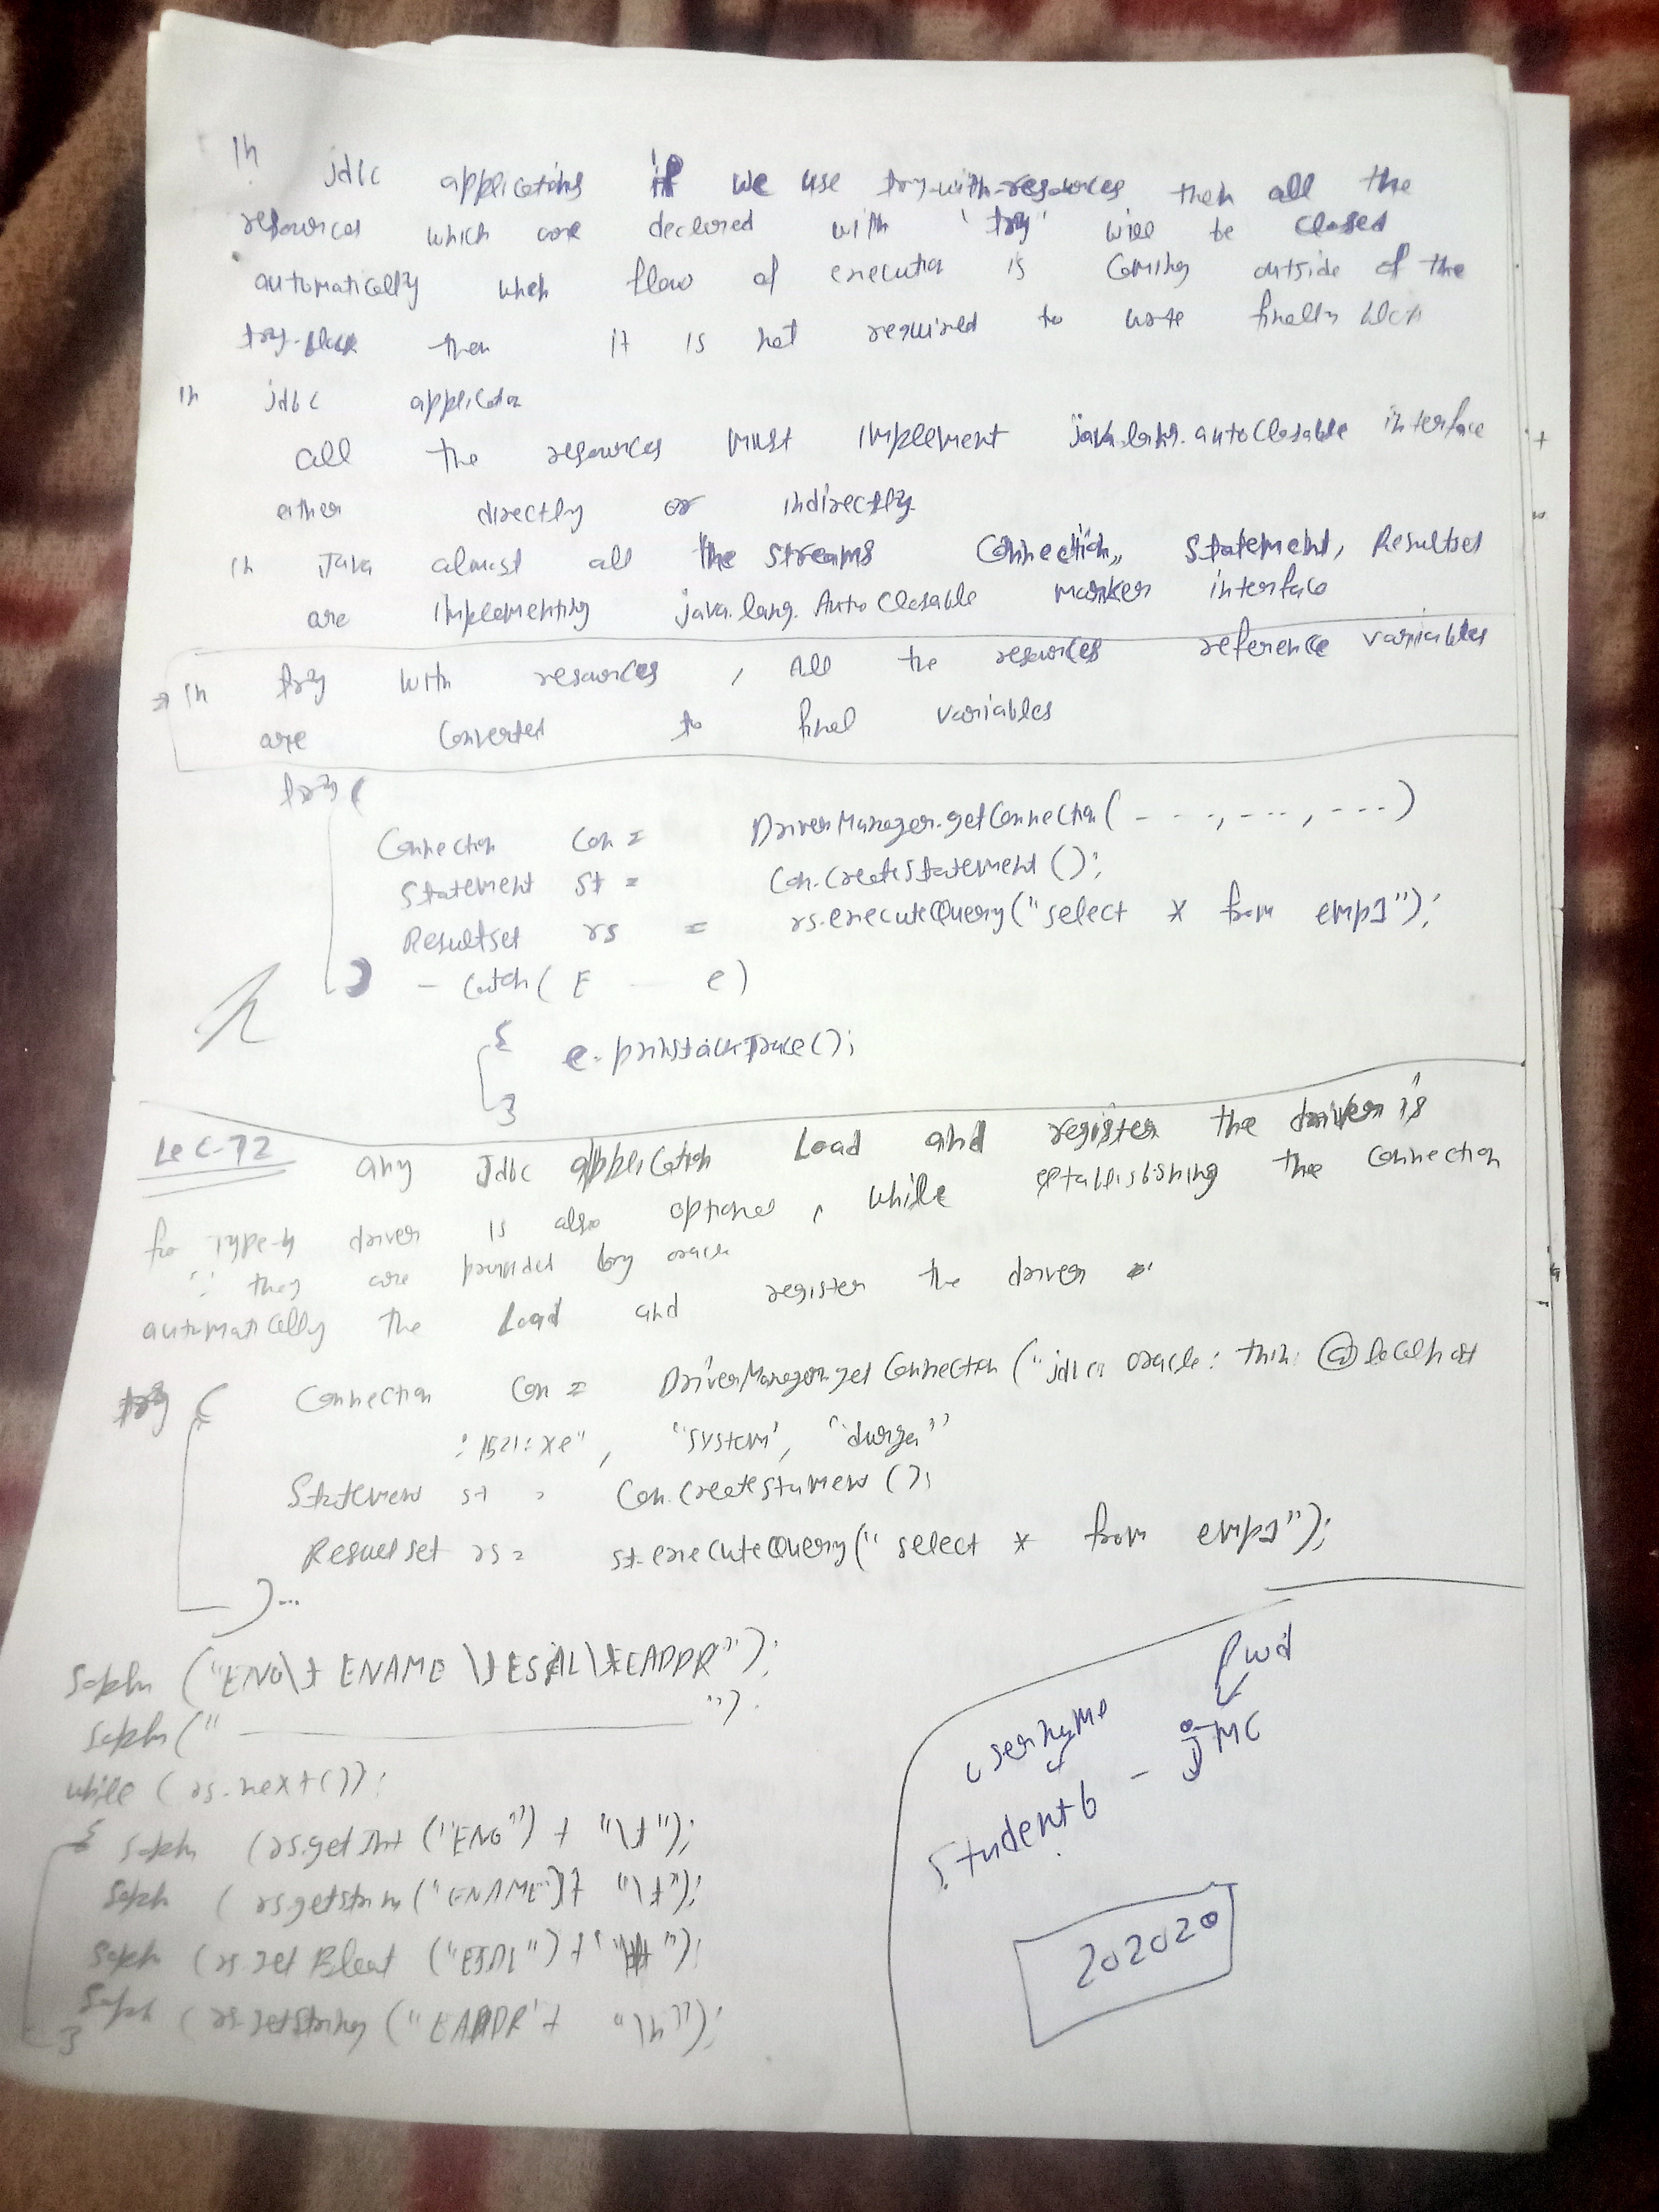 In jdbc applications if we use try-with-resources then all the
resources which are declared with 'try' will be closed
automatically when flow of execution is coming outside of the
try-block then it is not required to write finally block
in jdbc application
all the resources must implement java.lang.autoClosable interface
either directly or indirectly
in Java almost all the streams Connection, Statement, Resultset
are implementing java.lang.AutoClosable marker interface
⇒ in try with resources, All the resources reference variables
are converted to final variables
try(
Connection con = DriverManager.getConnection(- - - -, - - -, - - -)
Statement st = con.createStatement();
Resultset rs = rs.executeQuery("select * from emp1");
) - catch( E - - e)
{ e.printStackTrace();
}
Lec-72 any Jdbc application Load and register the driver is
for Type-4 driver is also optional, while establishing the connection
∵ they are provided by oracle
automatically the Load and register the driver
try ( Connection con = DriverManager.getConnection ("jdbc: oracle: thin: @localhost
:1521:xe", "system', "durga"
Statement st = con.createStatement();
Resultset rs = st.executeQuery("select * from emp1");
)...
Sopln ("ENO\t ENAME \t ESAL\tEADDR");
Sopln (" ———— ").
while (rs.next()):
{ Sopln (rs.getInt ("ENO") + "\t");
Sopln (rs.getString ("ENAME")+ "\t");
Sopln (rs.getFloat ("ESAL") +
Sopln (rs.getString ("EADDR" + "\n");
}
Pwd
username
Student6 - jMC
202020